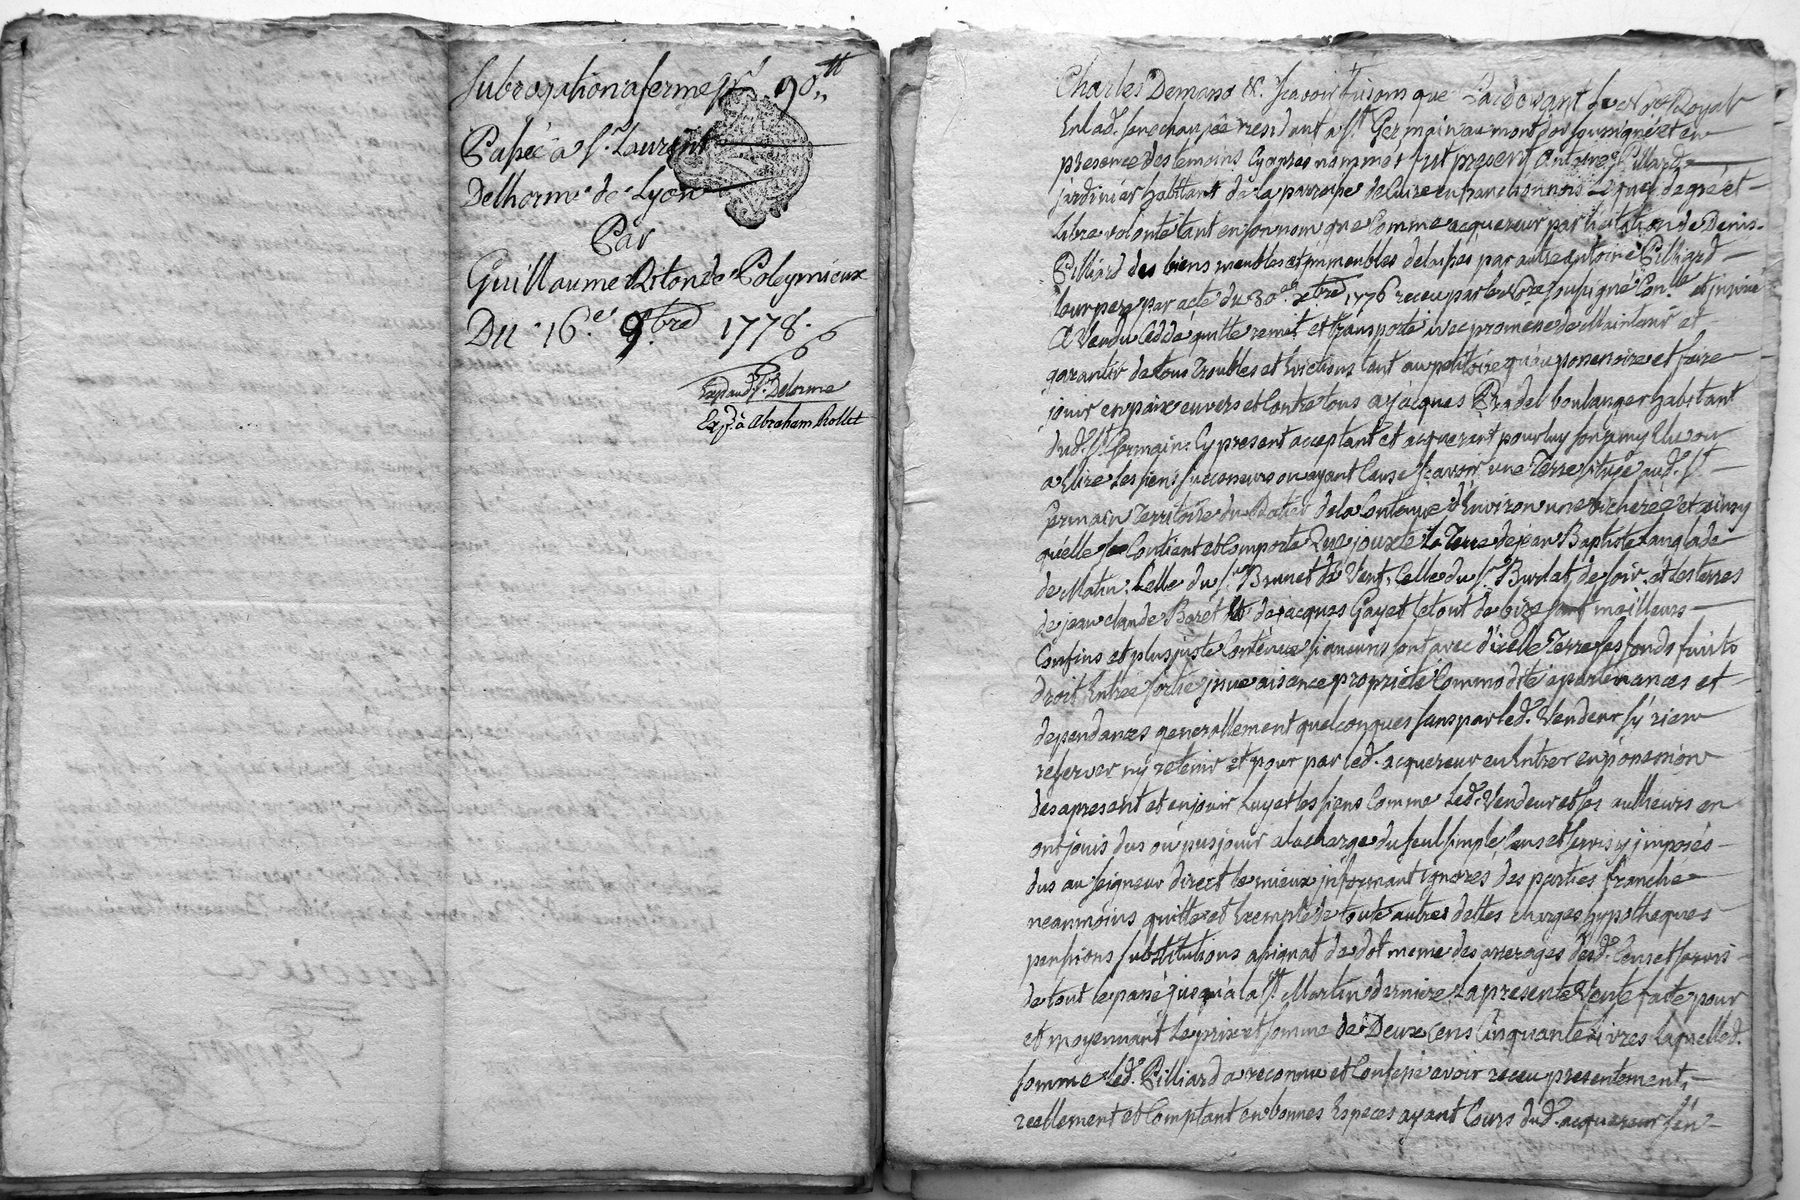 Subrogation a ferme p.r 90.tt
Passée a S.r Laurent
Delhorme de Lyon
Par
Guillaume Ritonde Poleymieux
Du 16.e 9.bre 1778.
Exp. aud. S.r Delorme
Exp. à Abraham Rollet
Charles Demasso &. Scavoir faisons que Pardevant le No.re Royal
En lad. senechaussée residant a S.t Germain au mont d'or soussigné et en
presence des temoins cy apres nommés fut present Antoine Pilliard
jardinier habitant de la parroisse de Cuire en franclionnois lequel de gré et
libre volonté tant en son nom que comme acquereur par licitation de Denis
Pilliard des biens meubles et immeubles delaissés par autre antoine Pilliard
leur pere par acte du 30.e xbre 1776 receu par le No.re soussigné Con.lle et insinué
A Vendu Cedde quitte remet et transporte avec promesse de Maintenir et
garantir de tous troubles et Evictions tant au petitoire qu'au possessoire et faire
jouir en paix envers et Contre tous a jacques Pradel boulanger habitant
dud. S.t Germain Cy present acceptant et acquerant pour luy son amy Elu ou
a Elire Les siens successeurs ou ayant Cause scavoir une Terre située aud. S.t
Germain Territoire du Ratier de la Contenue d'Environ une bicherée et ainsy
qu'elle se Contient et Comporte Que jouxte La Terre de jean Baptiste Langlade
de Matin, Celle du S.r Brunet de Vent, Celle du S.r Burdat de soir, et les terres
de jean claude Baret & de jacques Gayet le tout de bize sauf meilleurs
Confins et plus juste Contenue si aucuns sont avec d'icelle Terre ses fonds fruits
droit Entrée sortie issue aisance proprieté Commodité apartenances et
dependances generallement quelconques sans par led. Vendeur s'y rien
reserver ny retenir et pour par led. acquereur en Entrer en possession
des apresent et en jouir Luy et les siens Comme Led. Vendeur et ses autheurs en
ont jouis dus ou pus jouir a la charge du seul simple Cens et servis y imposés
dus au seigneur direct le mieux informant ignorés des parties franche
neanmoins quitte et Exempte de toute autres dettes charges hypotheques
pensions substitutions assignat de dot meme des arrerages desd. Cens et servis
de tout le passé jusqu'à la S.t Martin derniere La presente Vente faite pour
et moyennant Le prix et somme de Deux Cens Cinquante Livres Laquelle d.
somme led. Pilliard a reconnu et Confessé avoir receu presentement,
reellement et Comptant en bonnes Especes ayant Cours dud. acquereur s'en